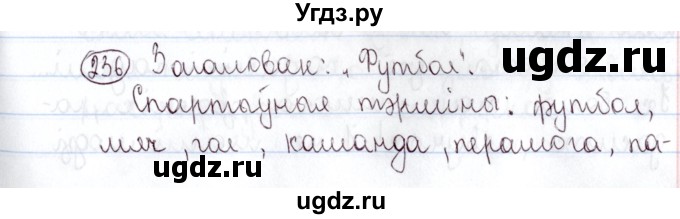 Угдз.ру
236 Загаловак: „Футбол".
Спартыўныя тэрміны: футбол,
мяч, гол, каманда, перамога, па-
©gdz.ru